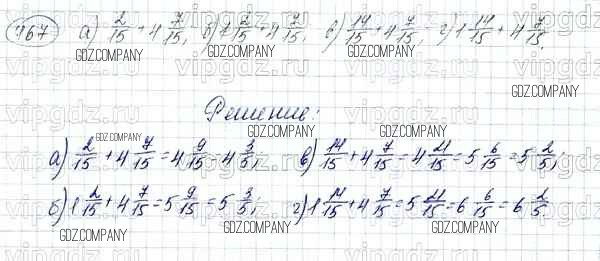 467 а) 2/15 + 4 7/15; б) 1 2/15 + 4 7/15; в) 14/15 + 4 7/15; г) 1 14/15 + 4 7/15.
GDZ.COMPANY GDZ.COMPANY GDZ.COMPANY
GDZ.COMPANY
Решение:
GDZ.COMPANY
а) 2/15 + 4 7/15 = 4 9/15 = 4 3/5; в) 14/15 + 4 7/15 = 4 21/15 = 5 6/15 = 5 2/5;
б) 1 2/15 + 4 7/15 = 5 9/15 = 5 3/5; г) 1 14/15 + 4 7/15 = 5 21/15 = 6 6/15 = 6 2/5.
GDZ.COMPANY GDZ.COMPANY GDZ.COMPANY